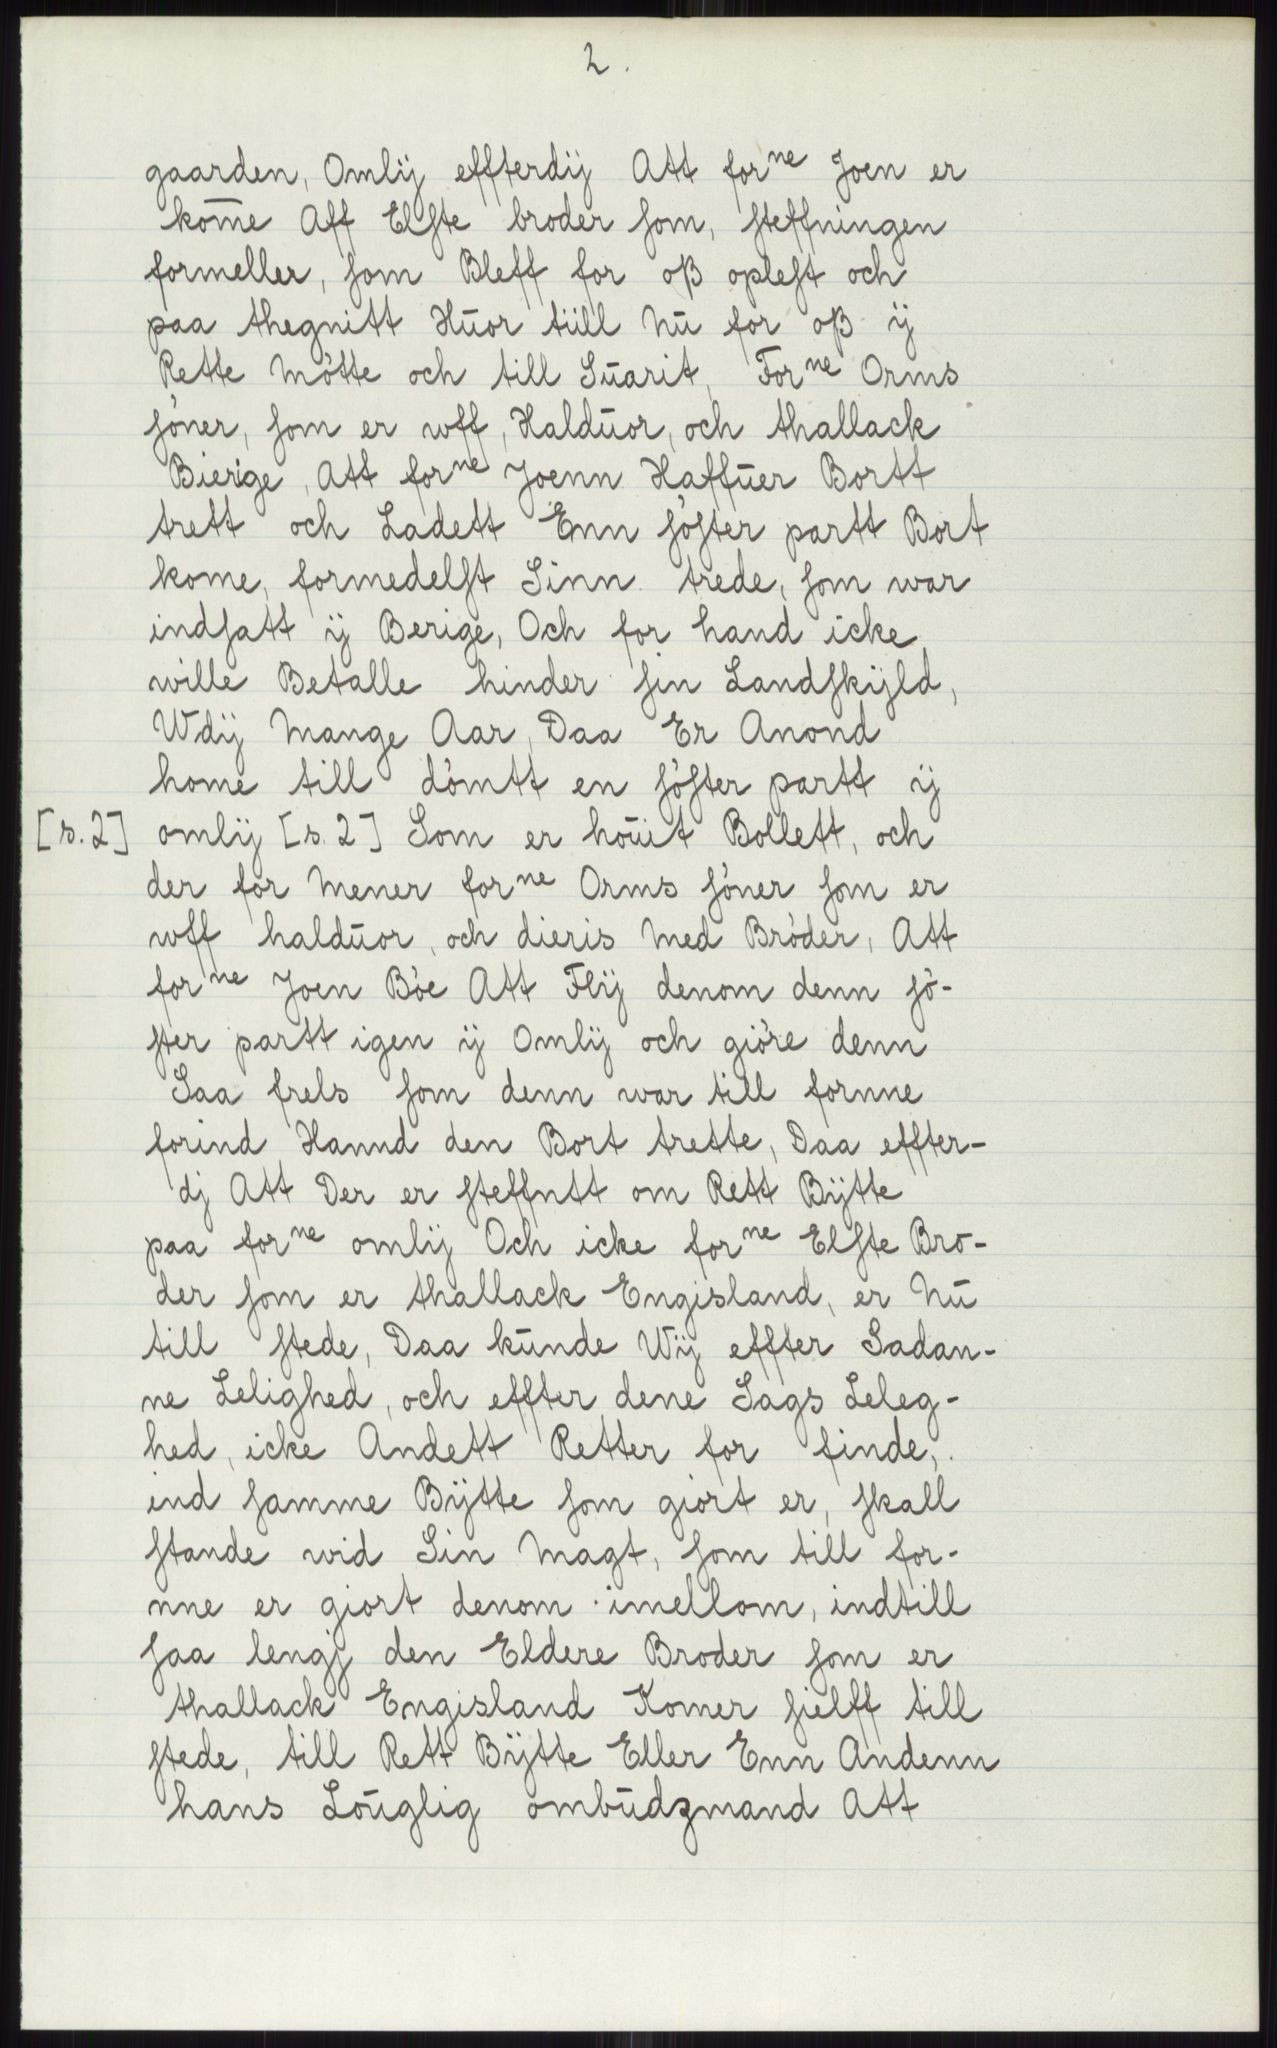 2.
gaarden, Omlÿ effterdÿ Att forⁿᵉ Joen er
kom̄e Aff Elste broder som, steffningen
formeller, som Bleff for oß oplest och
paa thegnitt Hūor tiill Nū for oß ÿ
Rette Mótte och till Sūarit, Forⁿᵉ Orms
sóner, som er wff, Haldūor, och thallack
Bierige, Att forⁿᵉ Joenn Haffūer Bortt
trett och Ladett Enn sóster partt Bort
kome, formedelst Sinn trede, som war
indsatt ÿ Berige, Och for hand icke
wille Betalle hinder sin Landskÿld,
Wdÿ Mange Aar, Daa Er Anond
home till dómtt en sóster partt ÿ
[s.2] omlÿ [s.2] Som er hoūit Bollett, och
der for Mener forⁿᵉ Orms sóner som er
wff haldūor, och dieris Med Bróder, Att
forⁿᵉ Joen Bóe Att Flÿ denom denn só-
ster partt igen ÿ Omlÿ och gióre denn
Saa frels som denn war till fornne
forind Hannd den Bort trette, Daa effter-
dj Att Der er steffntt om Rett Bÿtte
paa forⁿᵉ omlÿ Och icke forⁿᵉ Elste Bro-
der som er thallack Engisland, er Nū
till stede, Daa kūnde Wÿ effter Sadan-
ne Lelighed, och effter dene Sags Leleg-
hed, icke Andett Retter for finde,
ind samme Bÿtte som giort er, skall
stande wid Sin Magt, som till for-
nne er giort denom imellom, indtill
saa lengj den Eldere Broder som er
thallack Engisland Komer sielff till
stede, till Rett Bÿtte Eller Enn Andenn
hans Loūglig ombūdzmand Att